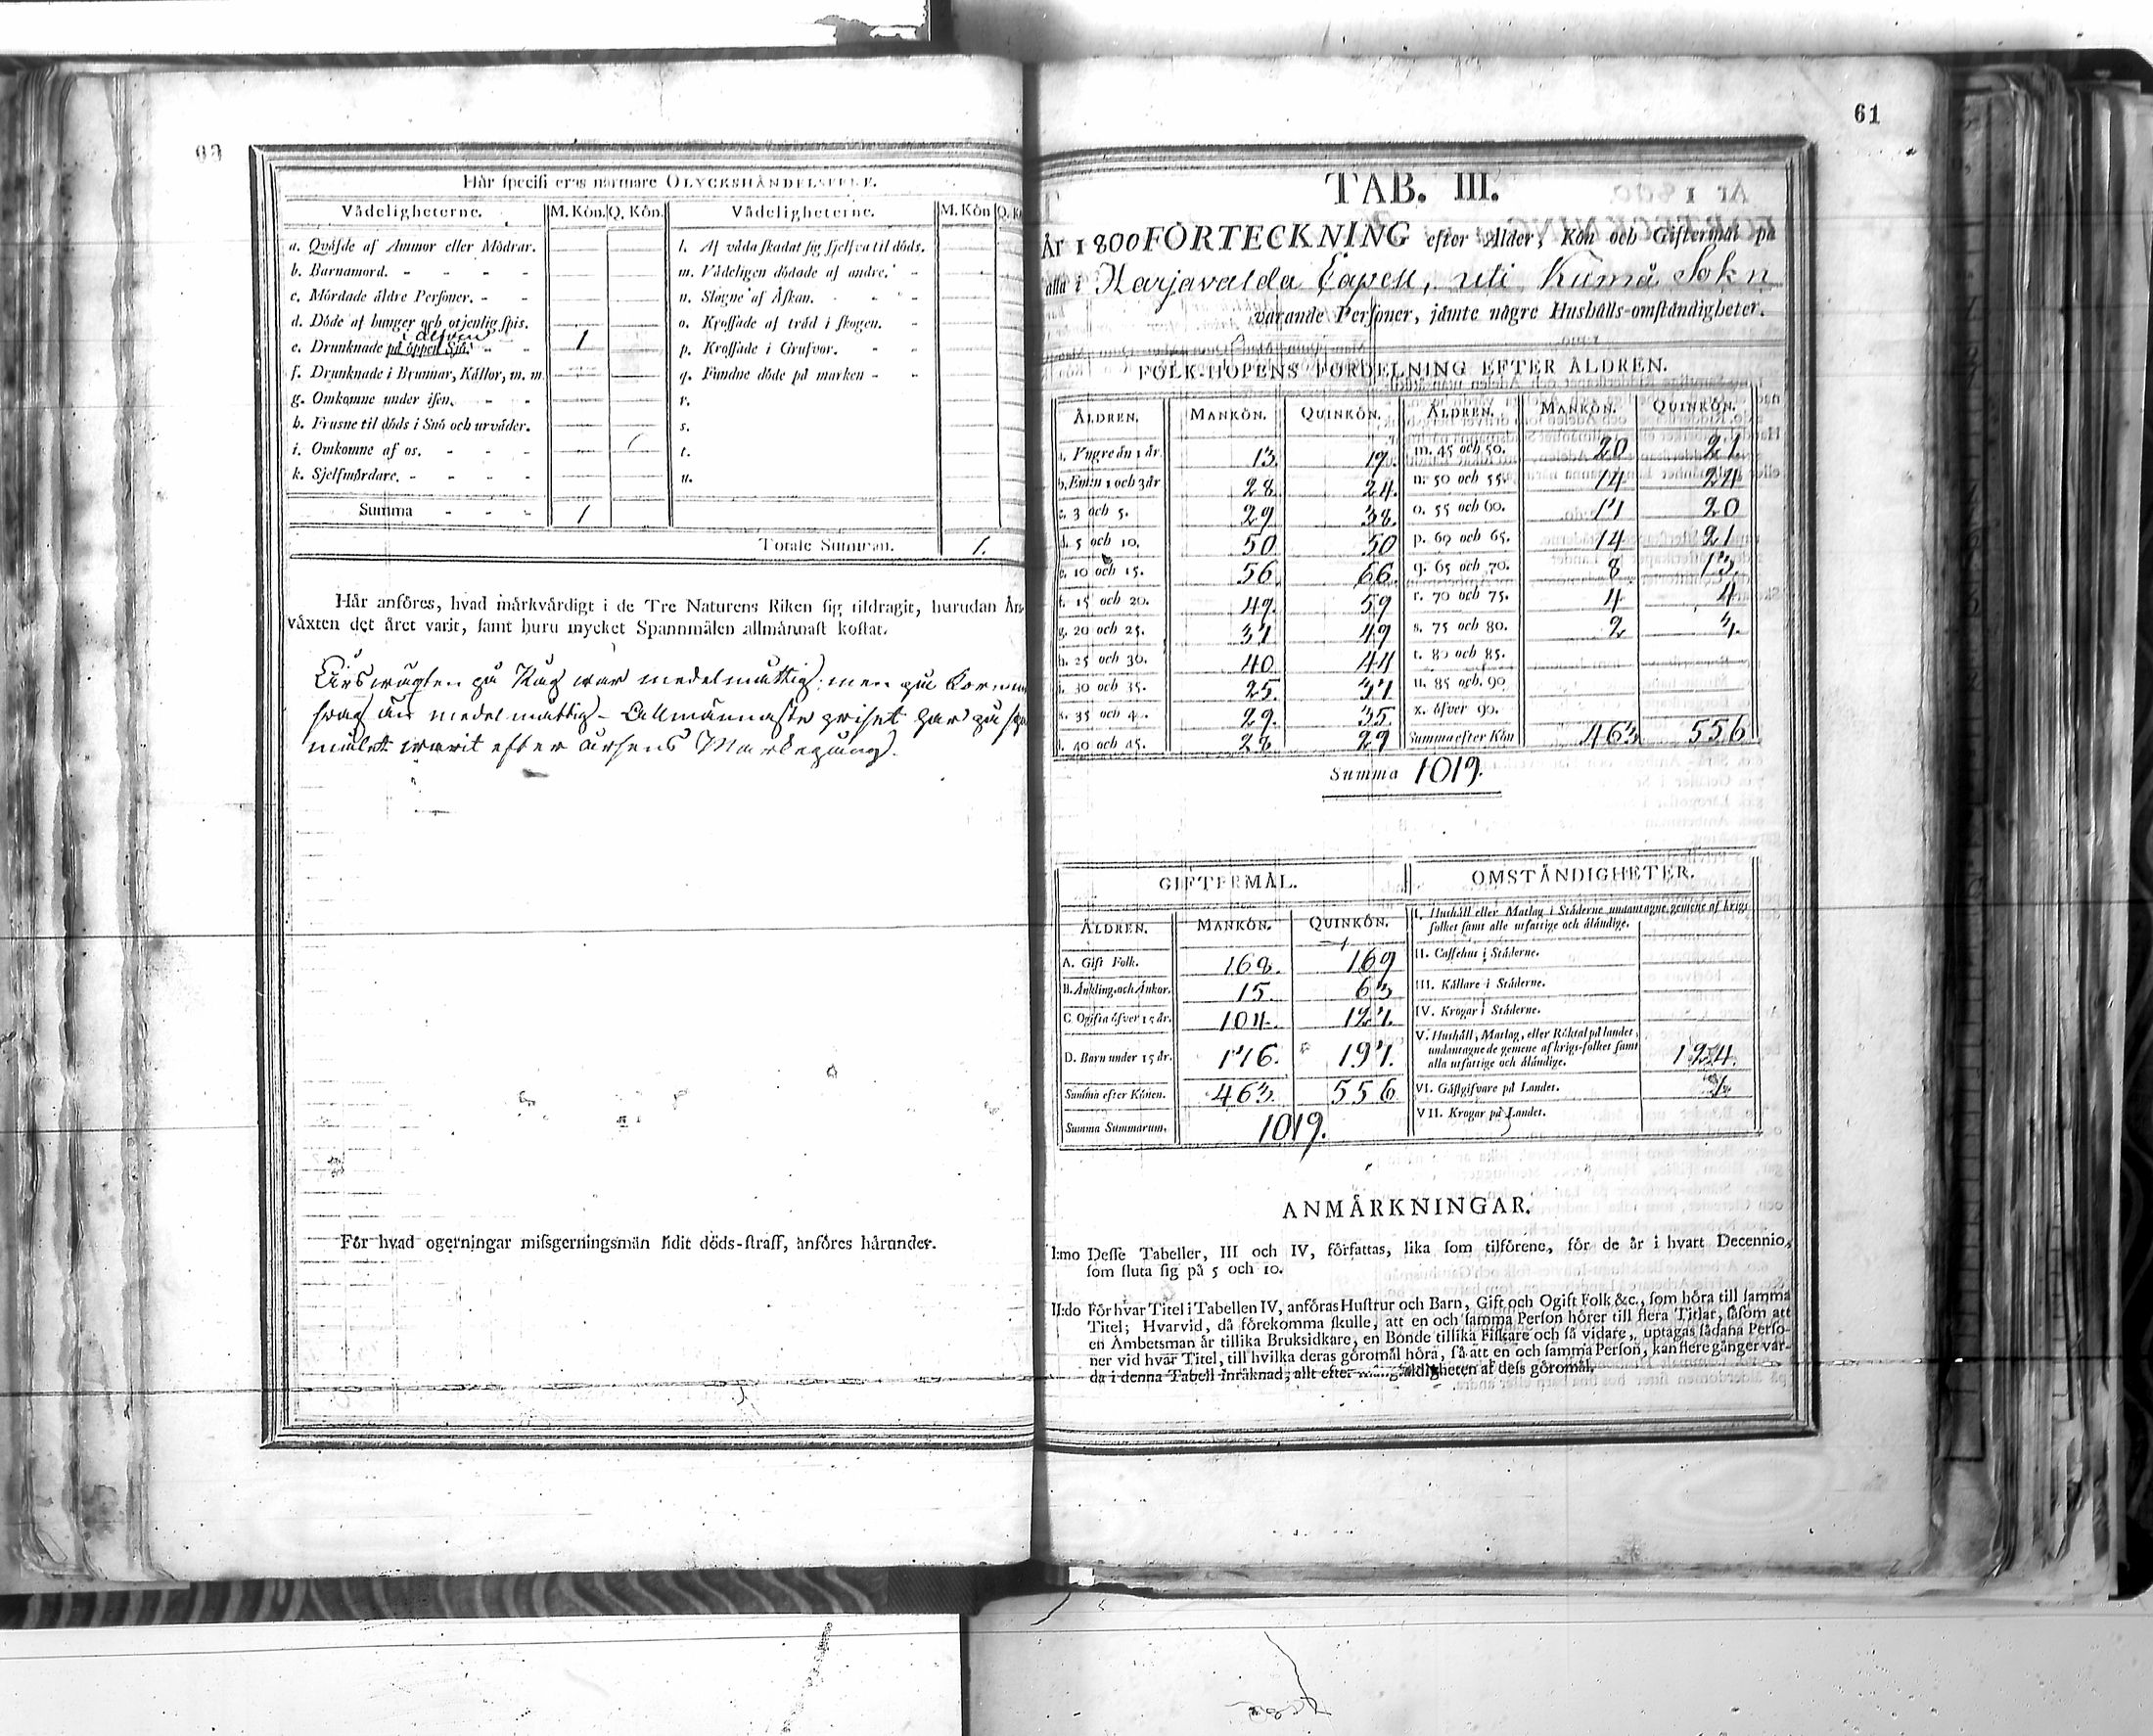 61
Här specificeras närmare OLYCKSHÄNDELSERNE.
Vådeligheterne. M. Kön. Q. Kön. Vådeligheterne. M. Kön
a. Qväfde af Ammor eller Mödrar. l. Af våda skadat sig sjelfva til döds.
b. Barnamord. m. Vådeligen dödade af andre.
c. Mördade äldre Personer. n. Slagne af Åskan.
d. Döde af hunger och otjenlig spis. o. Krossade af träd i skogen.
i älfven
e. Drunknade på öppen Sjö. 1 p. Krossade i Grufvor.
f. Drunknade i Brunnar, Källor, m. m. q. Fundne döde på marken
g. Omkomne under isen. r.
h. Frusne til döds i Snö och urväder. s.
i. Omkomne af os. t.
k. Sjelfmördare. u.
Summa 1
Totale Summan. 1.
Här anföres, hvad märkvärdigt i de Tre Naturens Riken sig tildragit, hurudan Års-
växten det året varit, samt huru mycket Spannmålen allmännast kostat.
Årswäxten på Råg war medelmåttig; men på
än medelmåttig - Allmännaste priset har på
målet warit efter årsens Markegång.
För hvad ogerningar missgerningsmän lidit döds-straff, anföres härunder.
TAB. III.
År 1800 FÖRTECKNING efter Ålder, Kön och Giftermål på
alla i Harjavalda Capell, uti Kumå Sokn
varande Personer, jämte någre Hushålls-omständigheter.
FOLK-HOPENS FÖRDELNING EFTER ÅLDREN.
ÅLDREN. MANKÖN. QUINKÖN. ÅLDREN. MANKÖN. QUINKÖN.
a. Yngre än 1 år 13. 19. m. 45 och 50. 20 21.
b. Emellan 1 och 3 år 28. 24. n. 50 och 55. 14 24
c. 3 och 5. 29 38. o. 55 och 60. 11 20
d. 5 och 10. 50 50 p. 60 och 65. 14 21
e. 10 och 15. 56. 66. q. 65 och 70. 8 13.
f. 15 och 20. 49. 59 r. 70 och 75. 4 4
g. 20 och 25. 37 49 s. 75 och 80. 2
h. 25 och 30. 40 44 t. 80 och 85.
i. 30 och 35. 25. 37 u. 85 och 90
k. 35 och 40. 29. 35. x. öfver 90.
l. 40 och 45. 28 29 Summa efter Kön 463 556
Summa 1019.
GIFTERMÅL. OMSTÄNDIGHETER.
ÅLDREN. MANKÖN. QUINKÖN.
I. Hushåll eller Matlag i Städerne undantagne gemene af krigs
folket samt alle utfattige och åländige.
A. Gift Folk. 168. 169 II. Caffehus i Städerne.
B. Änkling. och Änkor. 15. 63 III. Källare i Städerne.
C. Ogifta öfver 15 år. 104. 127. IV. Krogar i Städerne.
D. Barn under 15 år. 176. 197. V. Hushåll, Matlag, eller Röktal på landet,
undantagnede gemene af krigs-folket samt
alla utfattige och åländige. 124.
Summa efter Könen. 463. 556 VI. Gästgifvare på Landet. 1.
Summa Summarum. 1019. VII. Krogar på Landet.
ANMÄRKNINGAR.
I:mo Desse Tabeller, III och IV, författas, lika som tilförene, för de år i hvart Decennio,
som sluta sig på 5 och 10.
II:do För hvar Titel i Tabellen IV, anföras Hustrur och Barn, Gift och Ogift Folk &c., som höra till samma
Titel; Hvarvid, då förekomma skulle, att en och samma Person hörer till flera Titlar, såsom att
en Ämbetsman är tillika Bruksidkare, en Bonde tillika Fiskare och så vidare, uptagas sådana Perso-
ner vid hvar Titel, till hvilka deras göromål höra, så att en och samma Person, kan flere gånger var-
da i denna Tabell inräknad, allt efter mångfaldigheten af dess göromål.